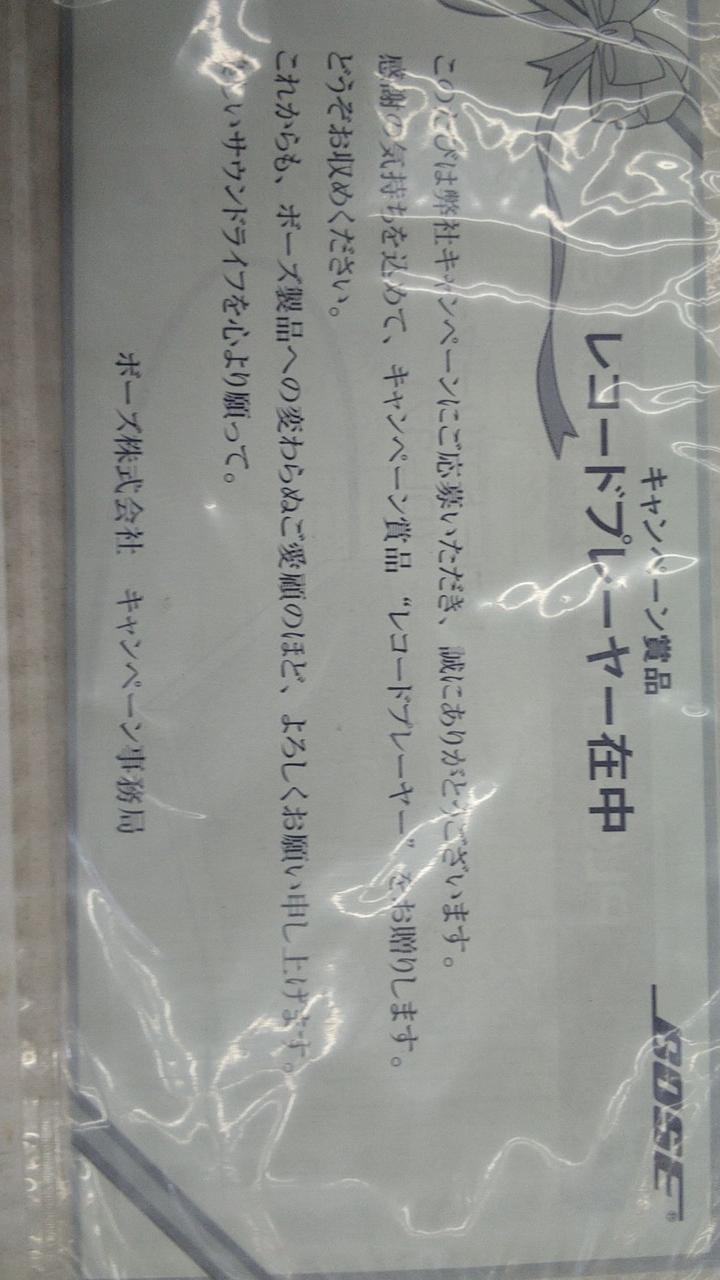 キャンペーン賞品
レコードプレーヤー在中
BOSE®
このたびは弊社キャンペーンにご応募いただき、誠にありがとうございます。
感謝の気持ちを込めて、キャンペーン賞品 “レコードプレーヤー” をお贈りします。
どうぞお収めください。
これからも、ボーズ製品への変わらぬご愛顧のほど、よろしくお願い申し上げます。
いサウンドライフを心より願って。
ボーズ株式会社 キャンペーン事務局